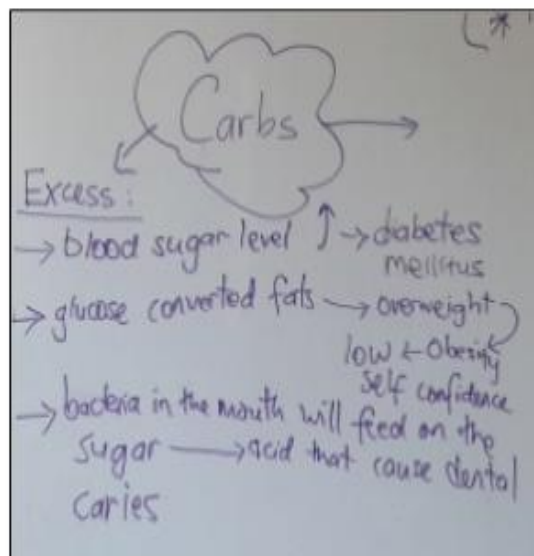 (*
Carbs
Excess:
→ blood sugar level ↑ → diabetes
mellitus
→ glucose converted fats → overweight
low ← Obesity
self confidence
→ bacteria in the mouth will feed on the
sugar → acid that cause dental
caries